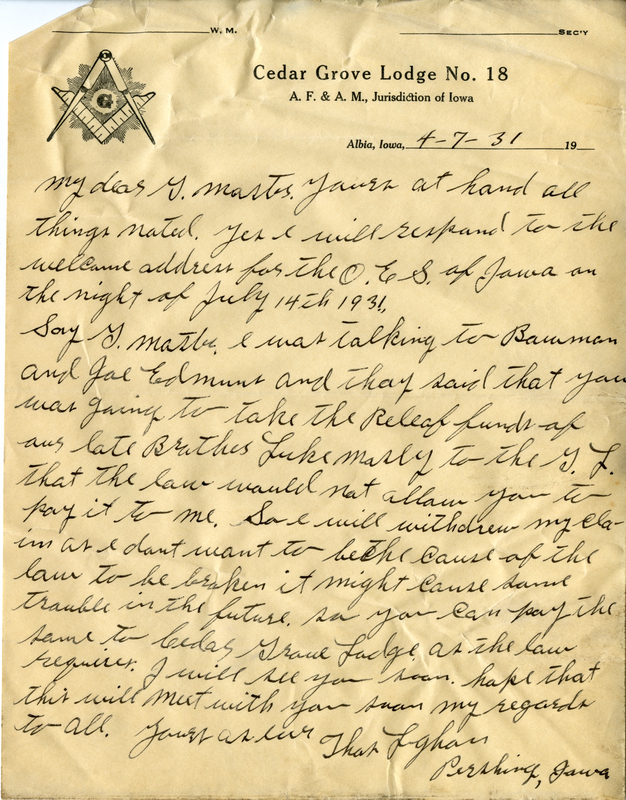 W. M. SEC'Y
G
Cedar Grove Lodge No. 18
A. F. & A. M., Jurisdiction of Iowa
Albia, Iowa, 4-7-31 19
my dear G. master. Yours at hand all
things noted. Yes I will respond to the
welcome address for the O. E. S. of Iowa on
the night of July 14th 1931,
Say G. master. I was talking to Bowman
and Joe Edmunt and thay said that you
was going to take the Releaf funds of
our late Brother Luke Mosly to the G. L.
that the law would not allow you to
pay it to me. So I will withdrew my cla-
im as I dont want to be the cause of the
law to be broken it might cause some
trouble in the future. so you can pay the
same to Cedar Grove Lodge as the law
requires. I will see you soon. hope that
this will meet with you soon my regards
to all. Yours as ever
Thos
Pershing, Iowa